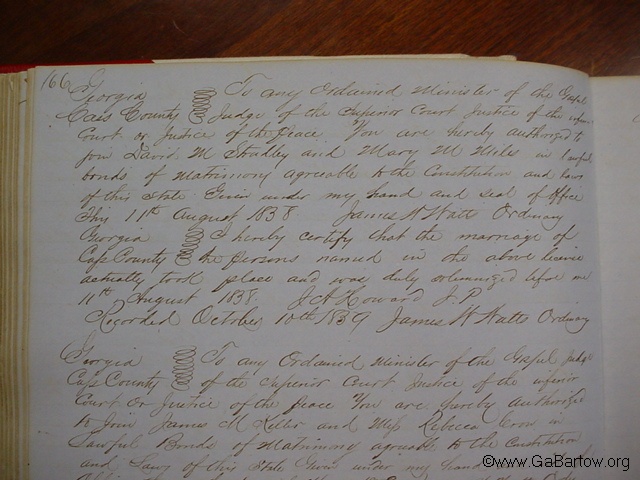 166
Georgia To any Ordained Minister of the Gospel
Cass County Judge of the Superior Court Justice of the inferior
Court or Justice of the Peace You are hereby authorized to
join David M Studley and Mary M Miles in lawful
bonds of Matrimony agreable to the Constitution and laws
of this State Given under my hand and seal of Office
This 11th August 1838 James W Watts Ordinary
Georgia I hereby certify that the marriage of
Cass County the persons named in the above license
actually took place and was duly solemnized before me
11th August 1838. J A Howard J. P
Recorded October 10th 1839 James W Watts Ordinary
Georgia To any Ordained Minister of the Gospel Judge
Cass County of the Superior Court Justice of the inferior
Court or Justice of the peace You are hereby authorized
to Join James M Keller and Miss Rebecca Crow in
Lawful Bonds of Matrimony agreable to the Constitution
and Laws of this State Given under my hand
©www.GaBartow.org